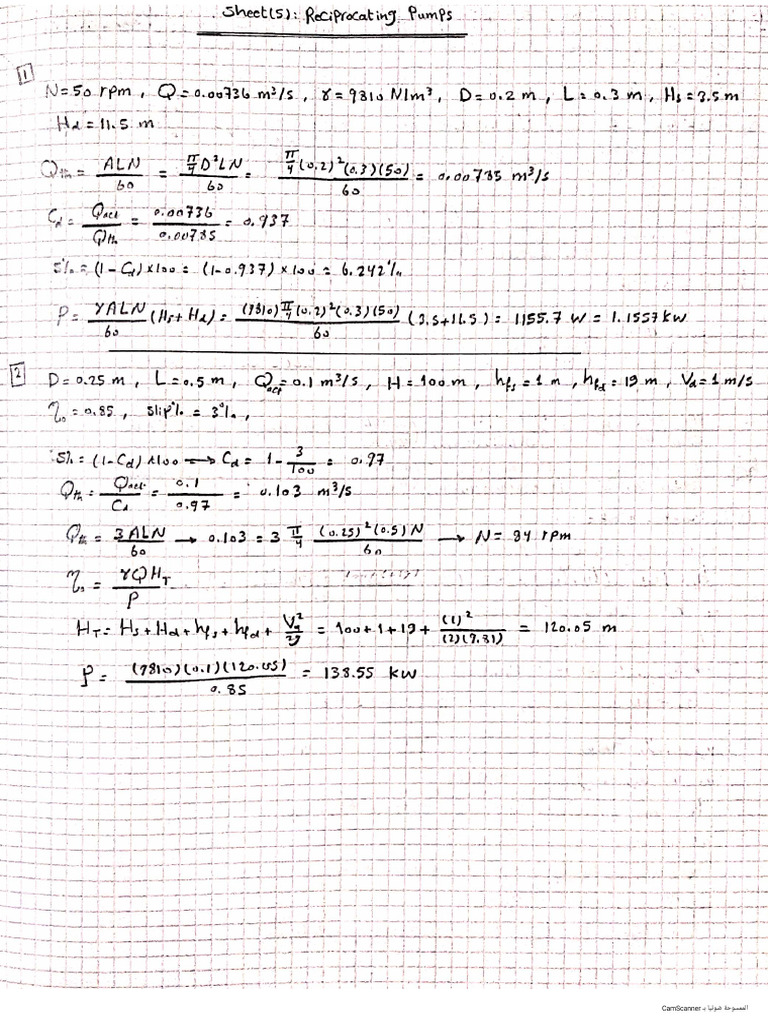 Sheet(5): Reciprocating Pumps
1
N=50 rpm , Q=0.00736 m³/s , γ=9810 N/m³ , D=0.2 m , L=0.3 m , Hs=3.5 m
Hd=11.5 m
Qth = ALN/60 = π/4 D²LN/60 = π/4 (0.2)²(0.3)(50)/60 = 0.00785 m³/s
Cd = Qact/Qth = 0.00736/0.00785 = 0.937
S% = (1-Cd)×100 = (1-0.937)×100 = 6.242%
P = γALN/60 (Hs+Hd) = (9810) π/4 (0.2)²(0.3)(50)/60 (3.5+11.5) = 1155.7 W = 1.1557 kW
2
D=0.25 m , L=0.5 m , Qact=0.1 m³/s , H=100 m , hfs=1 m , hfd=19 m , Vd=1 m/s
η₀=0.85 , Slip% = 3% ,
S% = (1-Cd)×100 → Cd = 1 - 3/100 = 0.97
Qth = Qact/Cd = 0.1/0.97 = 0.103 m³/s
Qth = 3ALN/60 → 0.103 = 3 π/4 (0.25)²(0.5)N/60 → N = 84 rpm
η₀ = γQHT/P
HT = Hs+Hd+hfs+hfd+ Vd²/2g = 100+1+19+ (1)²/(2)(9.81) = 120.05 m
P = (9810)(0.1)(120.05)/0.85 = 138.55 kW
الممسوحة ضوئيا بـ CamScanner